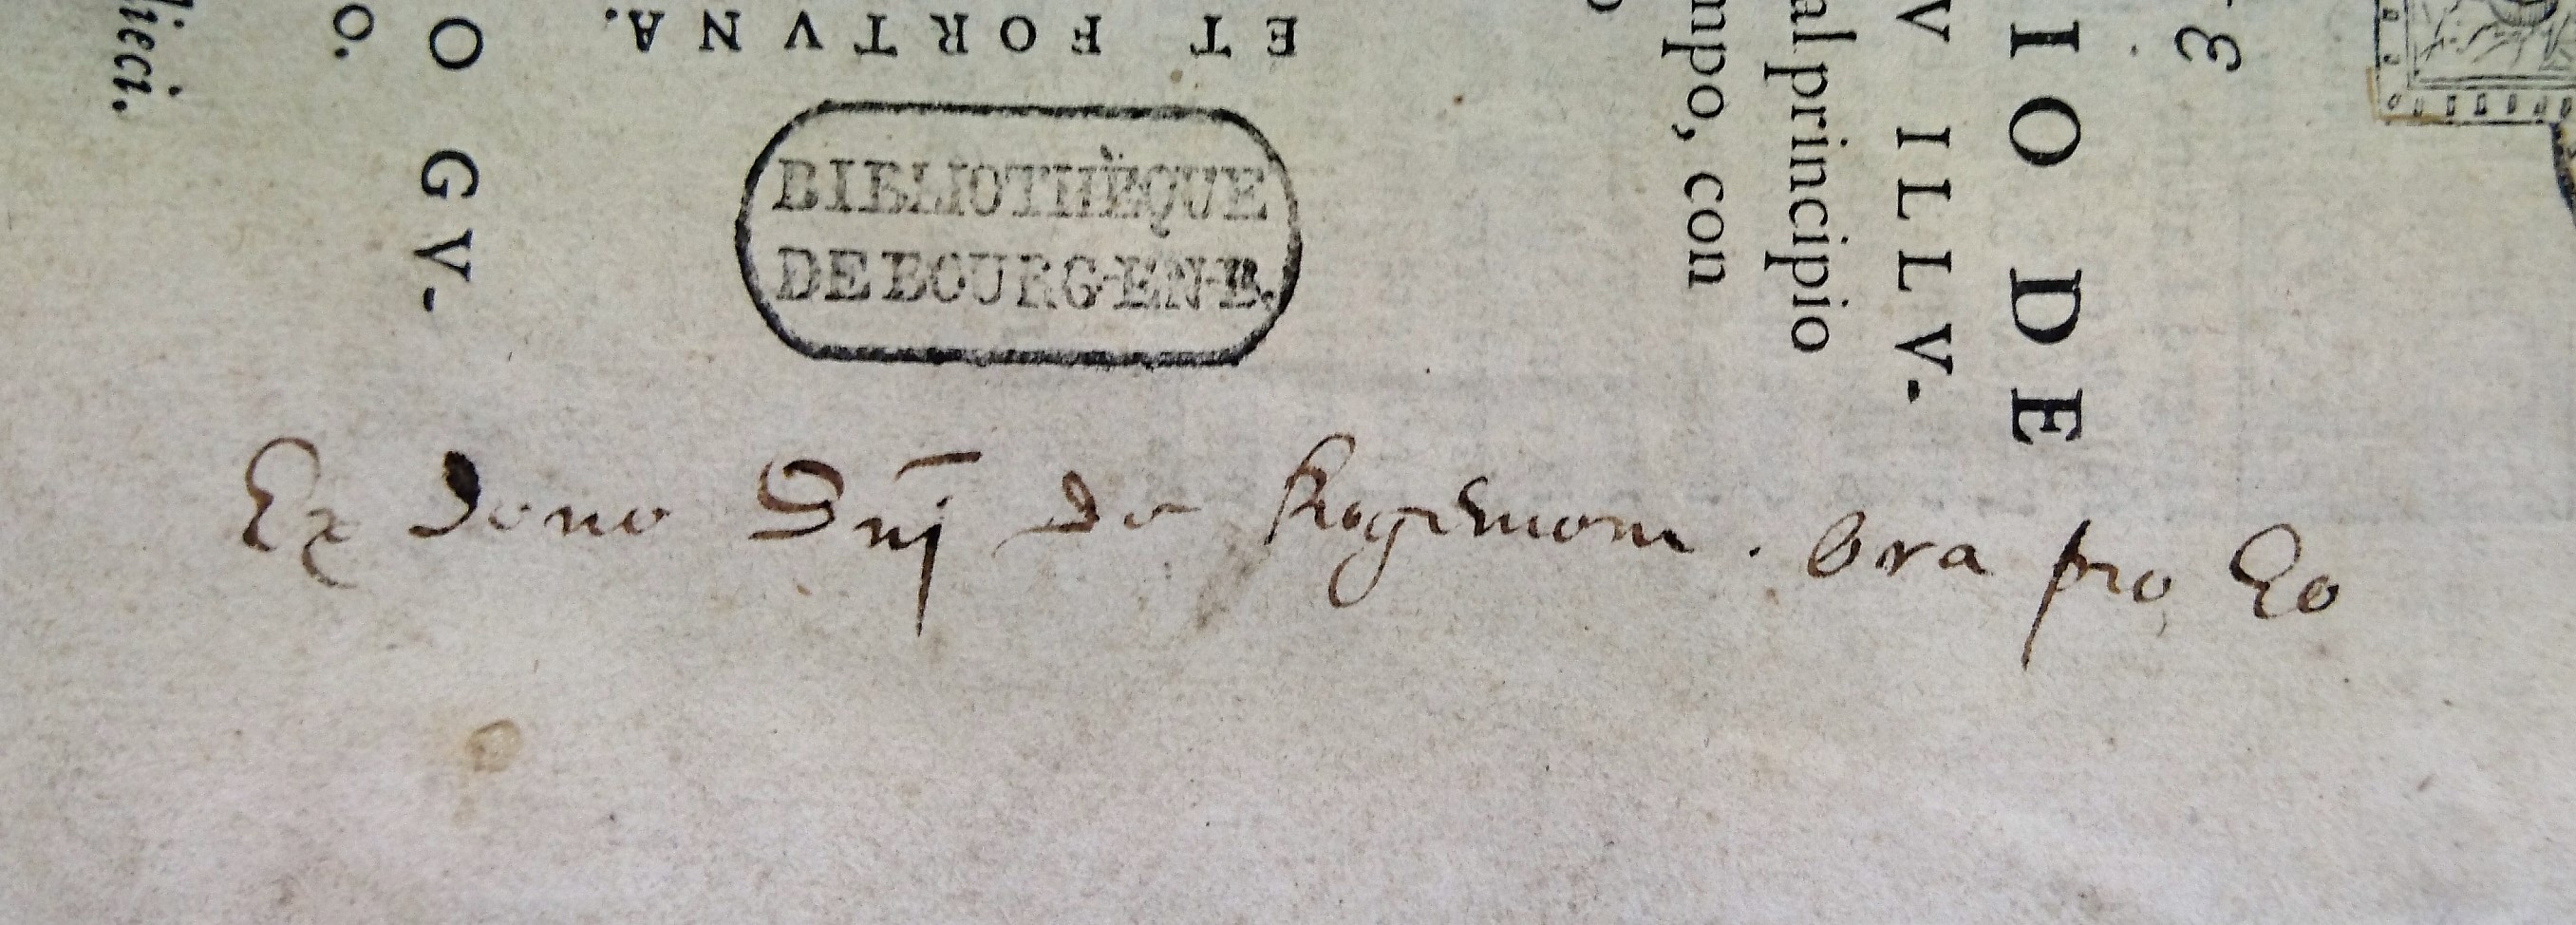 ET FORTVNA.
BIBLIOTHÈQUE
DE BOURG-EN-B.
Ex dono Dnj de Rogemont. Ora pro Eo
IO DE
V ILLV.
al principio
mpo, con
O GV-
O.
lieci.